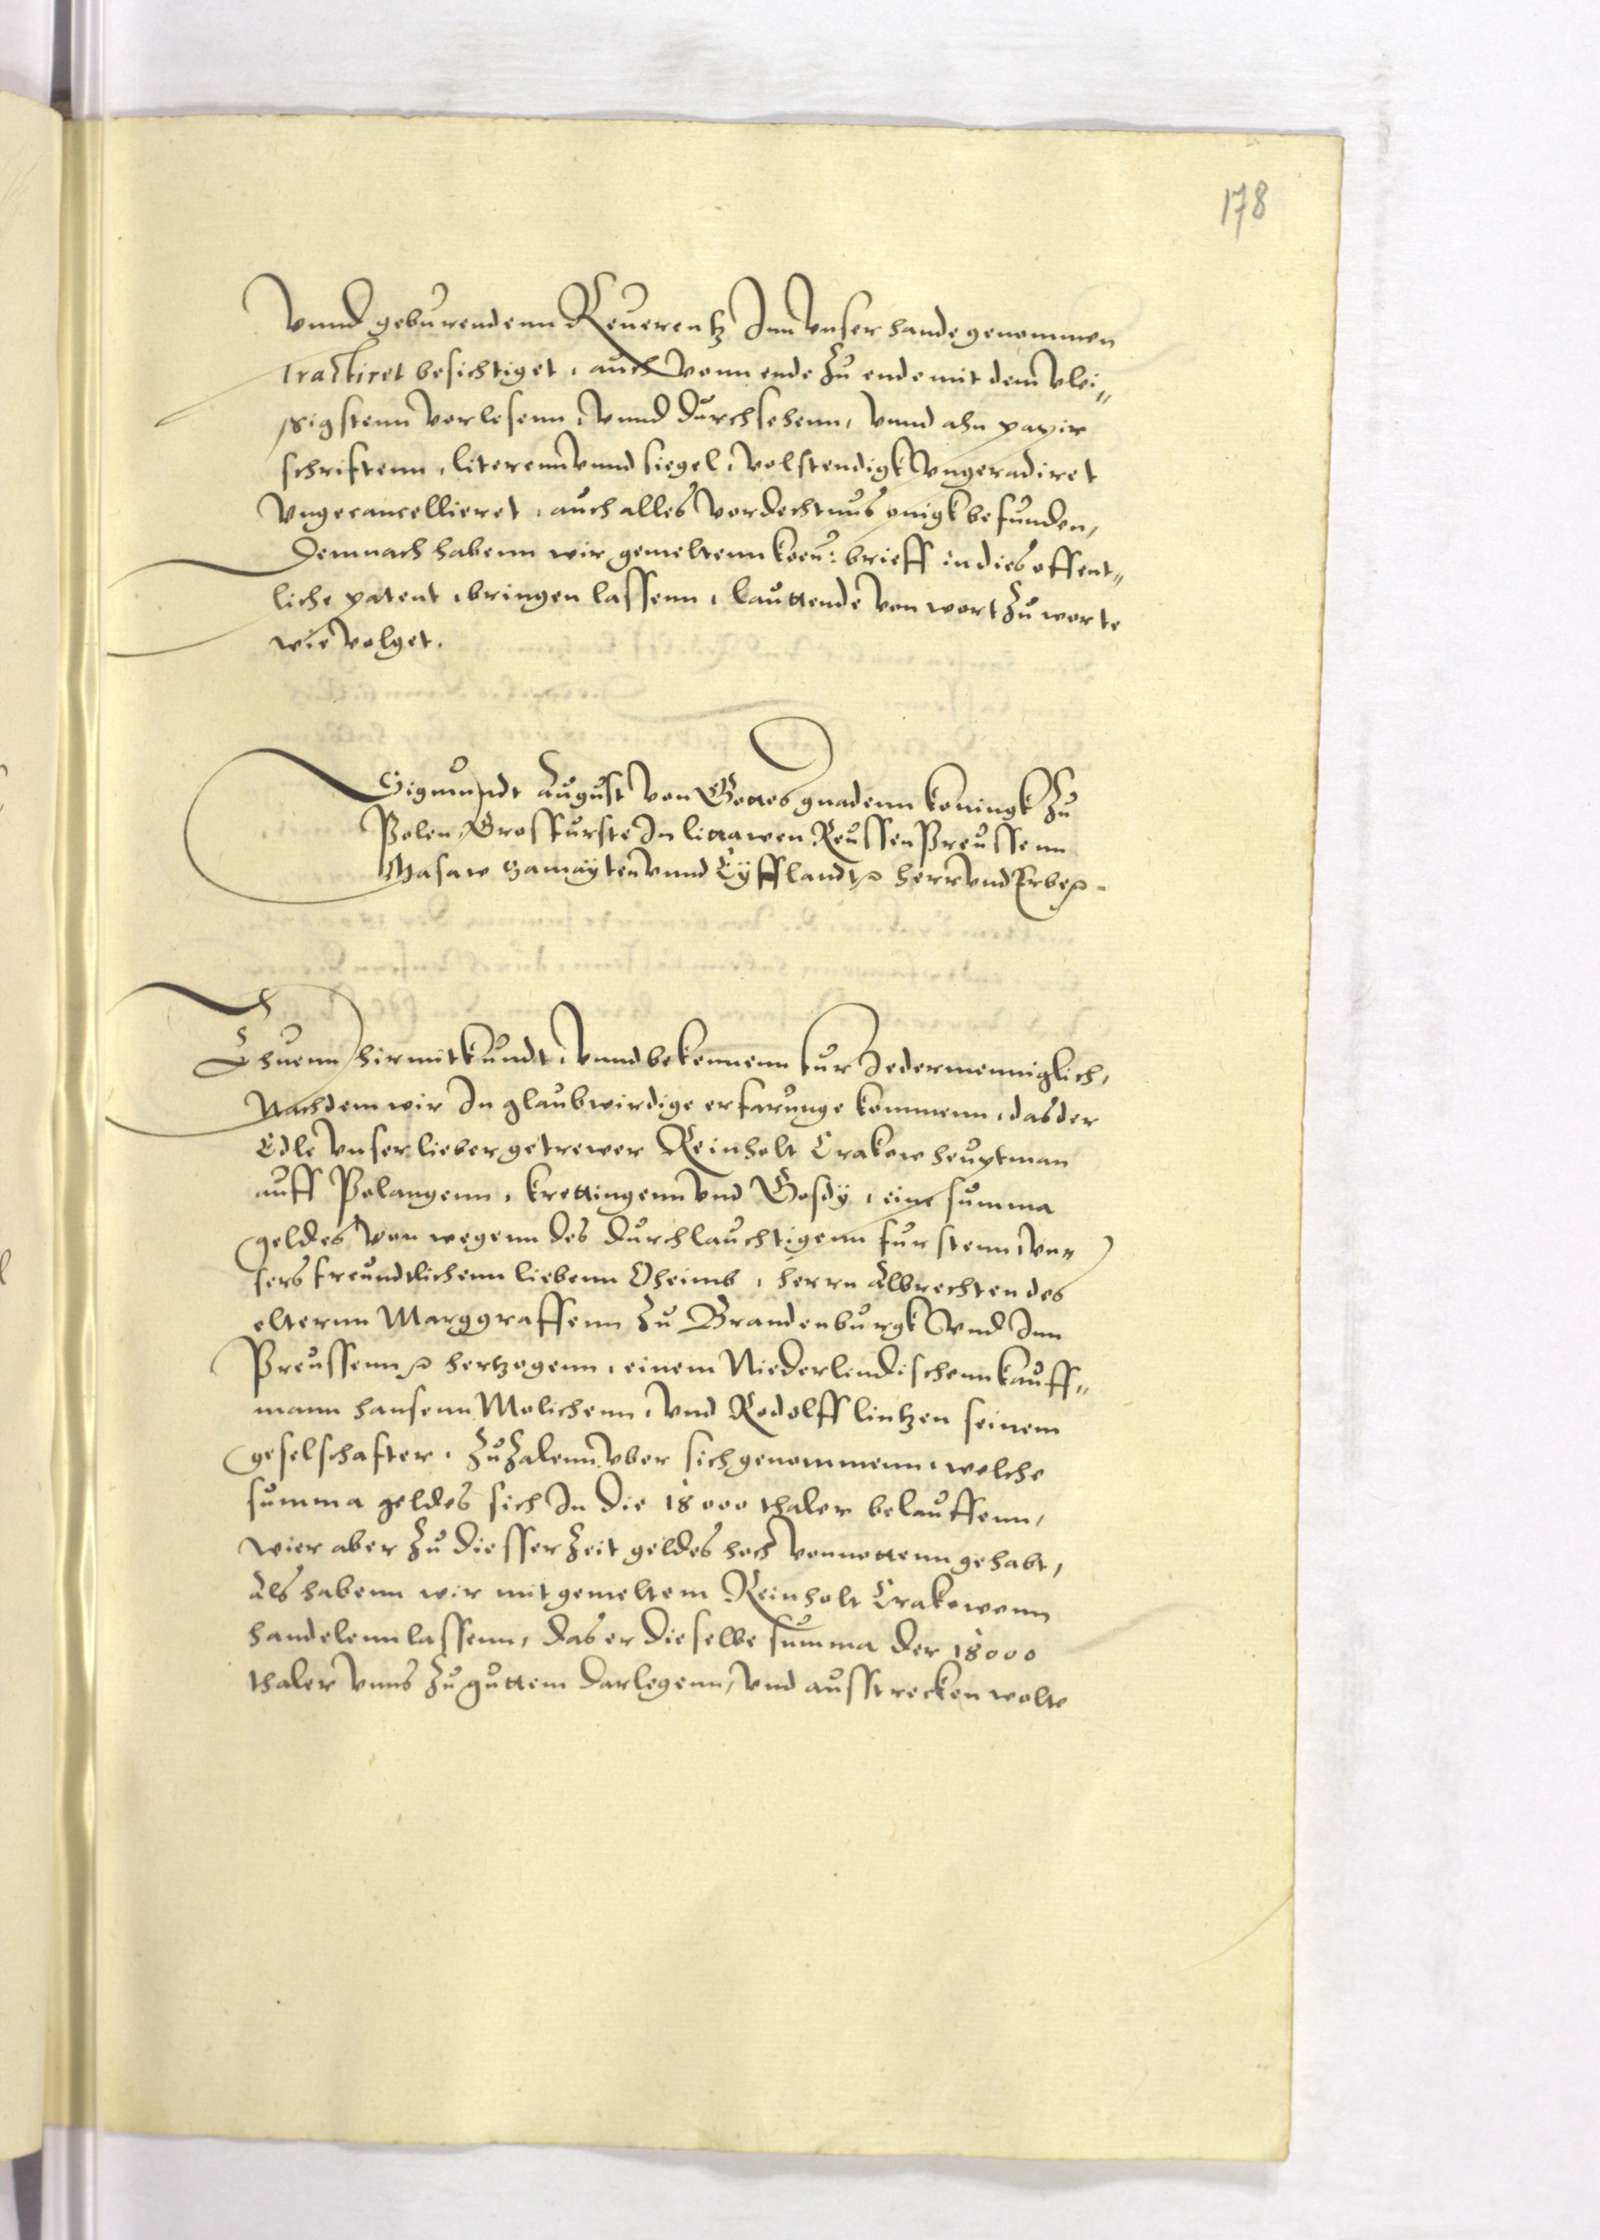 178
Vnnd geburendenn Reuerentz Inn vnser hande genommen
tractiret besichtiget, auch vonn ende zu ende mit dem vlei„
ssigstenn vorlesenn, vnnd durchsehenn, vnnd ahn papir
schriftenn, literenn vnnd siegel, volstendigk vngeradiret
vngecancellieret, auch alles vordechtnus onigk befunden,
Demnach habenn wir gemeltenn koen: brieff in dies offent„
liche patent, bringen lassenn, lauttende von wort zu worte
wie volget.
Sigmundt August von Gottes gnadenn koningk zu
Polen, Grosfurste In littawen Reussen Preussenn
Masaw Samayten vnnd Lyfflandt herr vnd Erbe
Thuenn hirmit kundt, vnnd bekennenn fur Jedermenniglich,
Nachdem wir In glaubwirdige erfarunge kommenn, das der
Edle vnser lieber getrewer Reinholt Crakow heuptman
auff Polangenn, krettingenn vnd Gosdy, eine summa
geldes von wegenn des durchlauchtigenn furstenn, vn„
sers freundtlichenn liebenn Oheimb, herrn Albrechten des
elternn Marggraffenn zu Brandenburgk vnd Inn
Preussenn hertzogenn, einem Niederlendischenn kauff„
mann hansenn Molichenn, vnd Rodolff lintzen seinem
geselschafter, zu zalenn vber sich genommenn, welche
summa geldes sich In die 18000 thaler belauffenn,
wier aber zu diesser zeit geldes hoch vonnottenn gehabt,
Als habenn wir mit gemeltem Reinholt Crakowenn
handelenn lassenn, das er dieselbe summa der 18000
thaler vnns zu guttem darlegenn, vnd ausstrecken wolte